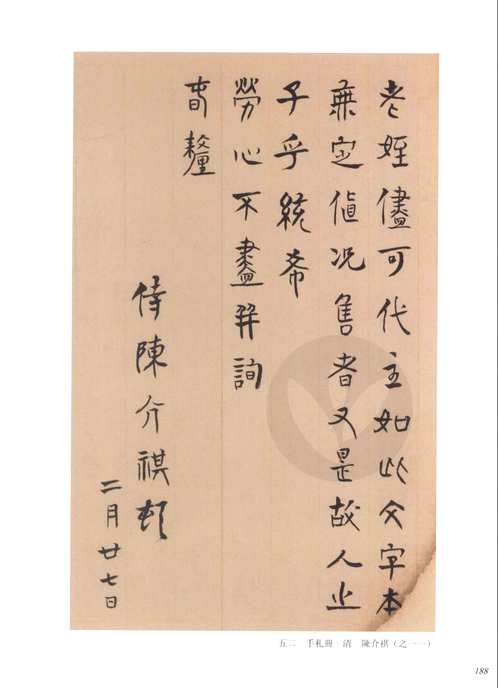 老姪儘可代主如此文字本
無定值况售者又是故人之
子乎統希
勞心不盡并詢
旾釐
侍陳介祺頓
二月廿七日
五二 手札册 清 陳介祺（之一一）
188